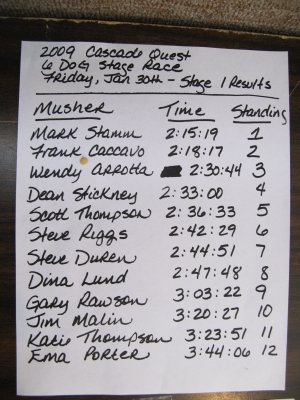 2009 Cascade Quest
6 Dog Stage Race
Friday, Jan 30th - Stage 1 Results
Musher Time Standing
Mark Stamm 2:15:19 1
Frank Caccavo 2:18:17 2
Wendy Arrotta 2:30:44 3
Dean Stickney 2:33:00 4
Scott Thompson 2:36:33 5
Steve Riggs 2:42:29 6
Steve Duren 2:44:51 7
Dina Lund 2:47:48 8
Gary Rawson 3:03:22 9
Jim Malin 3:20:27 10
Katie Thompson 3:23:51 11
Ema Porter 3:44:06 12